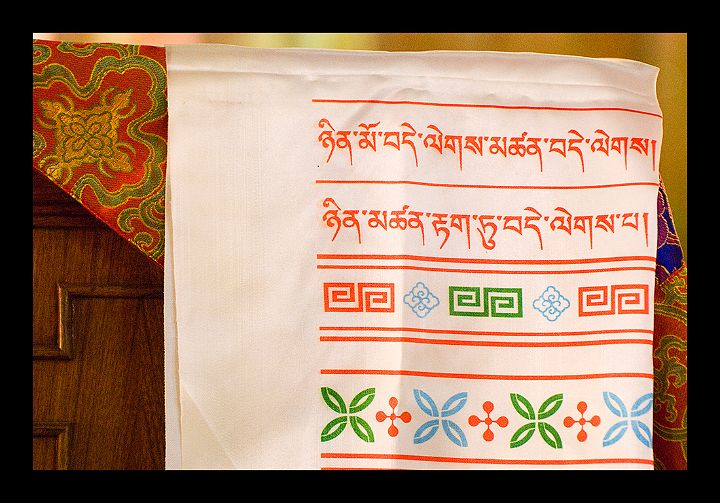 ཉིན་མོ་བདེ་ལེགས་མཚན་བདེ་ལེགས།
ཉིན་མཚན་རྟག་ཏུ་བདེ་ལེགས་པ།